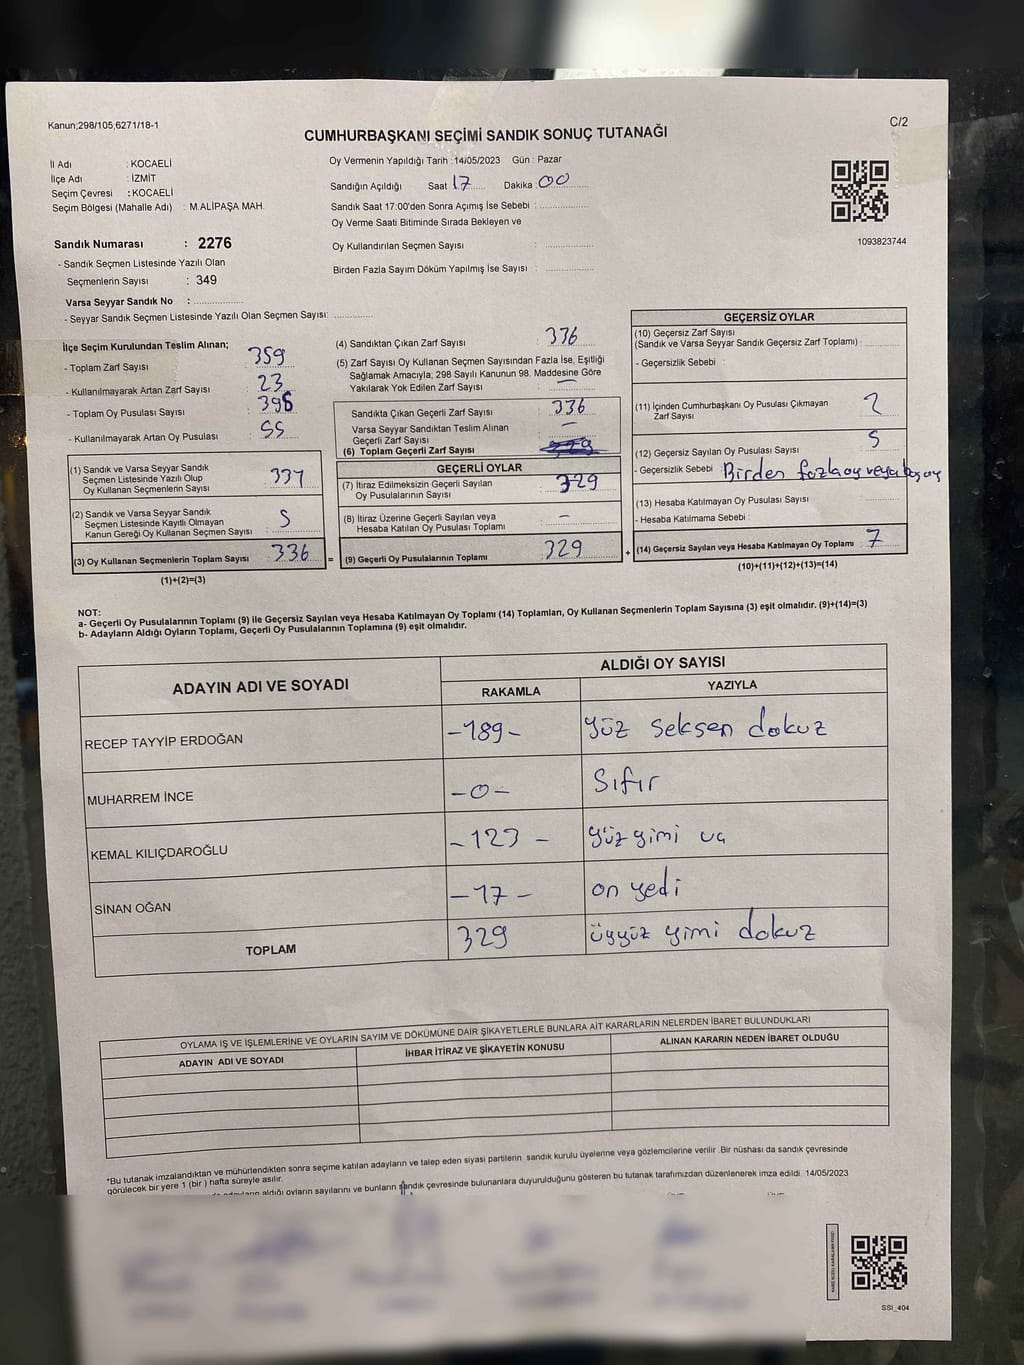 Kanun;298/105,6271/18-1
C/2
CUMHURBAŞKANI SEÇİMİ SANDIK SONUÇ TUTANAĞI
İl Adı : KOCAELİ
İlçe Adı : İZMİT
Seçim Çevresi : KOCAELİ
Seçim Bölgesi (Mahalle Adı) : M.ALİPAŞA MAH.
Oy Vermenin Yapıldığı Tarih : 14/05/2023 Gün : Pazar
Sandığın Açıldığı Saat 17 Dakika : 00
Sandık Saat 17:00'den Sonra Açımış İse Sebebi :
Oy Verme Saati Bitiminde Sırada Bekleyen ve
Oy Kullandırılan Seçmen Sayısı :
Birden Fazla Sayım Döküm Yapılmış İse Sayısı :
1093823744
Sandık Numarası : 2276
- Sandık Seçmen Listesinde Yazılı Olan
Seçmenlerin Sayısı : 349
Varsa Seyyar Sandık No :
- Seyyar Sandık Seçmen Listesinde Yazılı Olan Seçmen Sayısı:
İlçe Seçim Kurulundan Teslim Alınan;
- Toplam Zarf Sayısı : 359
- Kullanılmayarak Artan Zarf Sayısı : 23
- Toplam Oy Pusulası Sayısı :
- Kullanılmayarak Artan Oy Pusulası : 55
(1) Sandık ve Varsa Seyyar Sandık
Seçmen Listesinde Yazılı Olup
Oy Kullanan Seçmenlerin Sayısı :
(2) Sandık ve Varsa Seyyar Sandık
Seçmen Listesinde Kayıtlı Olmayan
Kanun Gereği Oy Kullanan Seçmen Sayısı : 5
(3) Oy Kullanan Seçmenlerin Toplam Sayısı : 336
(1)+(2)=(3)
=
(4) Sandıktan Çıkan Zarf Sayısı : 336
(5) Zarf Sayısı Oy Kullanan Seçmen Sayısından Fazla İse, Eşitliği
Sağlamak Amacıyla; 298 Sayılı Kanunun 98. Maddesine Göre
Yakılarak Yok Edilen Zarf Sayısı : —
Sandıkta Çıkan Geçerli Zarf Sayısı : 336
Varsa Seyyar Sandıktan Teslim Alınan
Geçerli Zarf Sayısı : —
(6) Toplam Geçerli Zarf Sayısı
GEÇERLİ OYLAR
(7) İtiraz Edilmeksizin Geçerli Sayılan
Oy Pusulalarının Sayısı : 329
(8) İtiraz Üzerine Geçerli Sayılan veya
Hesaba Katılan Oy Pusulası Toplamı : –
(9) Geçerli Oy Pusulalarının Toplamı : 329
+
GEÇERSİZ OYLAR
(10) Geçersiz Zarf Sayısı
(Sandık ve Varsa Seyyar Sandık Geçersiz Zarf Toplamı) :
- Geçersizlik Sebebi :
(11) İçinden Cumhurbaşkanı Oy Pusulası Çıkmayan
Zarf Sayısı : 2
(12) Geçersiz Sayılan Oy Pusulası Sayısı : 5
- Geçersizlik Sebebi : Birden fazla oy veya boş oy
(13) Hesaba Katılmayan Oy Pusulası Sayısı :
- Hesaba Katılmama Sebebi :
(14) Geçersiz Sayılan veya Hesaba Katılmayan Oy Toplamı : 7
(10)+(11)+(12)+(13)=(14)
NOT:
a- Geçerli Oy Pusulalarının Toplamı (9) ile Geçersiz Sayılan veya Hesaba Katılmayan Oy Toplamı (14) Toplamları, Oy Kullanan Seçmenlerin Toplam Sayısına (3) eşit olmalıdır. (9)+(14)=(3)
b- Adayların Aldığı Oyların Toplamı, Geçerli Oy Pusulalarının Toplamına (9) eşit olmalıdır.
ADAYIN ADI VE SOYADI ALDIĞI OY SAYISI
RAKAMLA YAZIYLA
RECEP TAYYİP ERDOĞAN -189- Yüz seksen dokuz
MUHARREM İNCE -0- Sıfır
KEMAL KILIÇDAROĞLU -123- yüz yimi üç
SİNAN OĞAN -17- on yedi
TOPLAM 329 üçyüz yimi dokuz
OYLAMA İŞ VE İŞLEMLERİNE VE OYLARIN SAYIM VE DÖKÜMÜNE DAİR ŞİKAYETLERLE BUNLARA AİT KARARLARIN NELERDEN İBARET BULUNDUKLARI
ADAYIN ADI VE SOYADI İHBAR İTİRAZ VE ŞİKAYETİN KONUSU ALINAN KARARIN NEDEN İBARET OLDUĞU
*Bu tutanak imzalandıktan ve mühürlendikten sonra seçime katılan adayların ve talep eden siyasi partilerin sandık kurulu üyelerine veya gözlemcilerine verilir .Bir nüshası da sandık çevresinde
görülecek bir yere 1 (bir ) hafta süreyle asılır.
aldığı oyların sayılarını ve bunların sandık çevresinde bulunanlara duyurulduğunu gösteren bu tutanak tarafımızdan düzenlenerek imza edildi. 14/05/2023
SSI_404